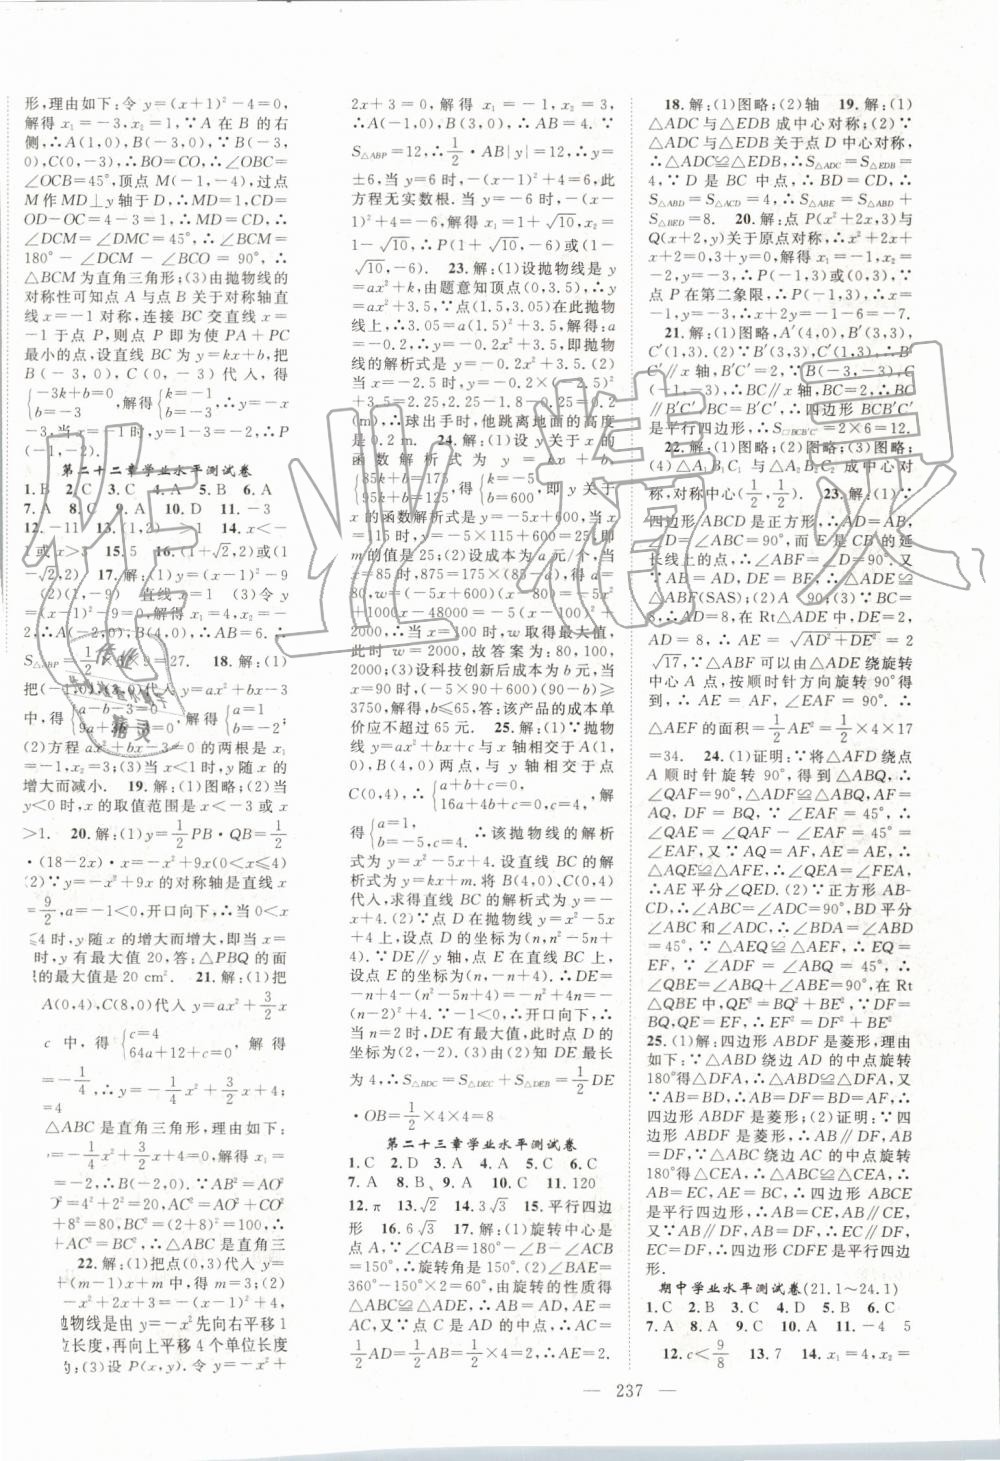 形,理由如下:令 y=(x+1)²-4=0,
解得 x₁=-3,x₂=1;∵A 在 B 的右
侧,∴A(1,0),B(-3,0),∵B(-3,
0),C(0,-3),∴BO=CO,∴∠OBC=
∠OCB=45°,顶点 M(-1,-4),过点
M 作 MD⊥y 轴于 D,∴MD=1,CD=
OD-OC=4-3=1,∴MD=CD,∴
∠DCM=∠DMC=45°,∴∠BCM=
180°-∠DCM-∠BCO=90°,∴
△BCM 为直角三角形;(3)由抛物线的
对称性可知点 A 与点 B 关于对称轴直
线 x=-1 对称,连接 BC 交直线 x=
-1 于点 P,则点 P 即为使 PA+PC
最小的点,设直线 BC 为 y=kx+b,把
B(-3,0),C(0,-3)代入,得
{-3k+b=0, b=-3, 解得{k=-1, b=-3, ∴y=-x
-3,当 x=-1 时,y=1-3=-2,∴
第二十二章学业水平测试卷
1.B 2.C 3.C 4.A 5.B 6.A
7.A 8.C 9.A 10.D 11.-3
12.-11 13.(1,2) 14.x<-
或 x>3 15.5 16.(1+√2,2)或(1
-√2,2) 17.解:(1)y=(x-1)²-9
(2)(1,-9) 直线 x=1 (3)令 y
=(x-1)²-9=0,解得 x₁=4,x₂=
-2,∴A(-2,0),B(4,0),∴AB=6.∴
S△ABP=1/2×6×9=27. 18.解:(1)
把(-1,0),(3,0)代入 y=ax²+bx-3
中,得 解得{a=1 b=-2
(2)方程 ax²+bx-3=0 的两根是 x₁
=-1,x₂=3;(3)当 x<1 时,y 随 x 的
增大而减小. 19.解:(1)图略;(2)当
y<0 时,x 的取值范围是 x<-3 或 x
>1. 20.解:(1)y=1/2PB·QB=1/2
·(18-2x)·x=-x²+9x(0<x≤4)
(2)∵y=-x²+9x 的对称轴是直线 x
=9/2,a=-1<0,开口向下,∴当 0<x
≤4 时,y 随 x 的增大而增大,即当 x=
时,y 有最大值 20,答:△PBQ 的面
积的最大值是 20 cm². 21.解:(1)把
A(0,4),C(8,0)代入 y=ax²+3/2x
c 中,得{c=4 64a+12+c=0, 解得
=-1/4, ∴y=-1/4x²+3/2x+4;
=4
△ABC 是直角三角形,理由如下:
-1/4x²+3/2x+4=0,解得 x₁=
=-2,∴B(-2,0),∵AB²=AO²
²=4²+2²=20,AC²=AO²+CO²
+8²=80,BC²=(2+8)²=100,∴
+AC²=BC²,∴△ABC 是直角三
22.解:(1)把点(0,3)代入 y=
+(m-1)x+m 中,得 m=3;
=-x²+2x+3=-(x-1)²+4,
抛物线是由 y=-x²先向右平移 1
位长度,再向上平移 4 个单位长度
;(3)设 P(x,y).令 y=-x²+
2x+3=0,解得 x₁=-1,x₂=3,
∴A(-1,0),B(3,0),∴AB=4.∵
S△ABP=12,∴1/2·AB|y|=12,∴y=
±6,当 y=6 时,-(x-1)²+4=6,此
方程无实数根.当 y=-6 时,-(x-
1)²+4=-6,解得 x₁=1+√10,x₂=
1-√10,∴P(1+√10,-6)或(1-
√10,-6). 23.解:(1)设抛物线是 y
=ax²+k,由题意知顶点(0,3.5),∴y
=ax²+3.5,∵点(1.5,3.05)在此抛物
线上,∴3.05=a(1.5)²+3.5,解得 a
=-0.2,∴y=-0.2x²+3.5,即抛物
线的解析式是 y=-0.2x²+3.5.(2)
当 x=-2.5 时,y=-0.2×(-2.5)²
+3.5=2.25,2.25-1.8-0.25=0.2
(m),∴球出手时,他跳离地面的高度
是 0.2 m. 24.解:(1)设 y 关于 x 的
函数解析式为 y=kx+b,
{85k+b=175, 95k+b=125, 得{k=-5, b=600, 即 y 关于
x 的函数解析式是 y=-5x+600,当 x
=115 时,y=-5×115+600=25,即
m 的值是 25;(2)设成本为 a 元/个,当
x=85 时,875=175×(85-a),得 a=
80,w=(-5x+600)(x-80)=-5x²
+1000x-48000=-5(x-100)²+
2000,∴当 x=100 时,w 取得最大值,
此时 w=2000,故答案为:80,100,
2000;(3)设科技创新后成本为 b 元,当
x=90 时,(-5×90+600)(90-b)≥
3750,解得,b≤65,答:该产品的成本单
价应不超过 65 元. 25.解:(1)∵抛物
线 y=ax²+bx+c 与 x 轴相交于 A(1,
0),B(4,0)两点,与 y 轴相交于点
C(0,4),∴{a+b+c=0, 16a+4b+c=0, c=4, 解
得{a=1, b=-5, c=4, ∴该抛物线的解析
式为 y=x²-5x+4.设直线 BC 的解
析式为 y=kx+m.将 B(4,0)、C(0,4)
代入,求得直线 BC 的解析式为 y=-x
+4.(2)∵点 D 在抛物线 y=x²-5x
+4 上,设点 D 的坐标为(n,n²-5n+
4),∵DE∥y 轴,点 E 在直线 BC 上,
设点 E 的坐标为(n,-n+4),∴DE=
-n+4-(n²-5n+4)=-n²+4n=
-(n-2)²+4,∵-1<0,开口向下,∴
当 n=2 时,DE 有最大值,此时点 D 的
坐标为(2,-2).(3)由(2)知 DE 最长
为 4,∴S△BDC=S△DEC+S△DEB=1/2DE
·OB=1/2×4×4=8
第二十三章学业水平测试卷
1.C 2.D 3.A 4.A 5.C 6.C
7.A 8.B 9.A 10.C 11.120
12.π 13.√2 14.3√3 15.平行四边
形 16.6√3 17.解:(1)旋转中心是
点 A,∵∠CAB=180°-∠B-∠ACB
=150°,∴旋转角是 150°.(2)∠BAE=
360°-150°×2=60°,由旋转的性质得
△ABC≌△ADE,∴AB=AD,AC=
AE,又∵点 C 是 AD 的中点,∴AC=
1/2AD=1/2AB=1/2×4=2,∴AE=2.
18.解:(1)图略;(2)轴 19.解:(1)
△ADC 与△EDB 成中心对称;(2)∵
△ADC 与△EDB 关于点 D 中心对称,
∴△ADC≌△EDB,∴S△ADC=S△EDB=
4,∵D 是 BC 中点,∴BD=CD,∴
S△ABD=S△ACD=4,∴S△ABE=S△ABD+
S△BED=8. 20.解:点 P(x²+2x,3)与
Q(x+2,y)关于原点对称,∴x²+2x+
x+2=0,y=-3,解得 x₁=-1,x₂=
-2,∴P(-1,3)或 P(0,3),∵
点 P 在第二象限,∴P(-1,3),∴x=
-1,y=-3,∴x+2y=-1-6=-7.
21.解:(1)图略,A′(4,0),B′(3,3),
C′(1,3).(2)∵B′(3,3),C′(1,3),∴B′
C′∥x 轴,B′C′=2,∵B(-3,-3),C(
-1,-3),∴BC∥x 轴,BC=2,∴BC∥
B′C′,BC=B′C′,∴四边形 BCB′C′
是平行四边形,∴S□BCB′C′=2×6=12.
22.解:(1)图略;(2)图略;(3)图略;
(4)△A₁B₁C₁ 与△A₂B₂C₂ 成中心对
称,对称中心(1/2,1/2). 23.解:(1)∵
四边形 ABCD 是正方形,∴AD=AB,
∠D=∠ABC=90°,而 E 是 CB 的延
长线上的点,∴∠ABF=∠D=90°,又
∵AB=AD,DE=BF,∴△ADE≌
△ABF(SAS);(2)A 90;(3)∵BC=
8,∴AD=8,在 Rt△ADE 中,DE=2,
AD=8,∴AE=√(AD²+DE²)=
2√17,∵△ABF 可以由△ADE 绕旋转
中心 A 点,按顺时针方向旋转 90°得
到,∴AE=AF,∠EAF=90°,∴
△AEF 的面积=1/2AE²=1/2×4×17
=34. 24.(1)证明:∵将△AFD 绕点
A 顺时针旋转 90°,得到△ABQ,∴
∠QAF=90°,∵∠EAF=45°,∴
∠QAE=∠QAF-∠EAF=45°=
∠EAF,又∵AQ=AF,AE=AE,∴
△AQE≌△AFE,∴∠AEQ=∠AEF,∴
AE 平分∠QED.(2)∵正方形 AB-
CD,∴∠ABC=∠ADC=90°,BD 平分
∠ABC 和∠ADC,∴∠DBC=∠ADB
=45°,∵△AQE≌△AFE,∴EQ=
EF,∵∠ADF=∠ABQ=45°,∴
∠QBE=∠ABQ+∠ABE=90°,在 Rt
△QBE 中,QE²=BE²+QB²,∵DF=
BQ,QE=EF,∴EF²=DF²+BE²
25.(1)解:四边形 ABDF 是菱形,理由
如下:∵△ABD 绕边 AD 的中点旋转
180°得△DFA,∴△ABD≌△DFA,∴
AB=DF,BD=FA,∵AB=BD,∴
AB=BD=DF=FA,∴
四边形 ABDF 是菱形;(2)证明:∵四
边形 ABDF 是菱形,∴AB∥DF,且
AB=DF,∵△ABC 绕边 AC 的中点旋转
180°得△CEA,∴△ABC≌△CEA,∴
AB=CE,BC=EA,∴四边形 ABCE
是平行四边形,∴AB∥CE,AB=CE,
又∵AB∥DF,AB=DF,∴CE∥DF,
EC=DF,∴四边形 CDFE 是平行四边
形.
期中学业水平测试卷(21.1~24.1)
1.C 2.B 3.C 4.D 5.B 6.C
7.A 8.A 9.B 10.A 11.-4 5
12.c<9/8 13.7 14.x₁=4,x₂=
— 237 —
作业精灵